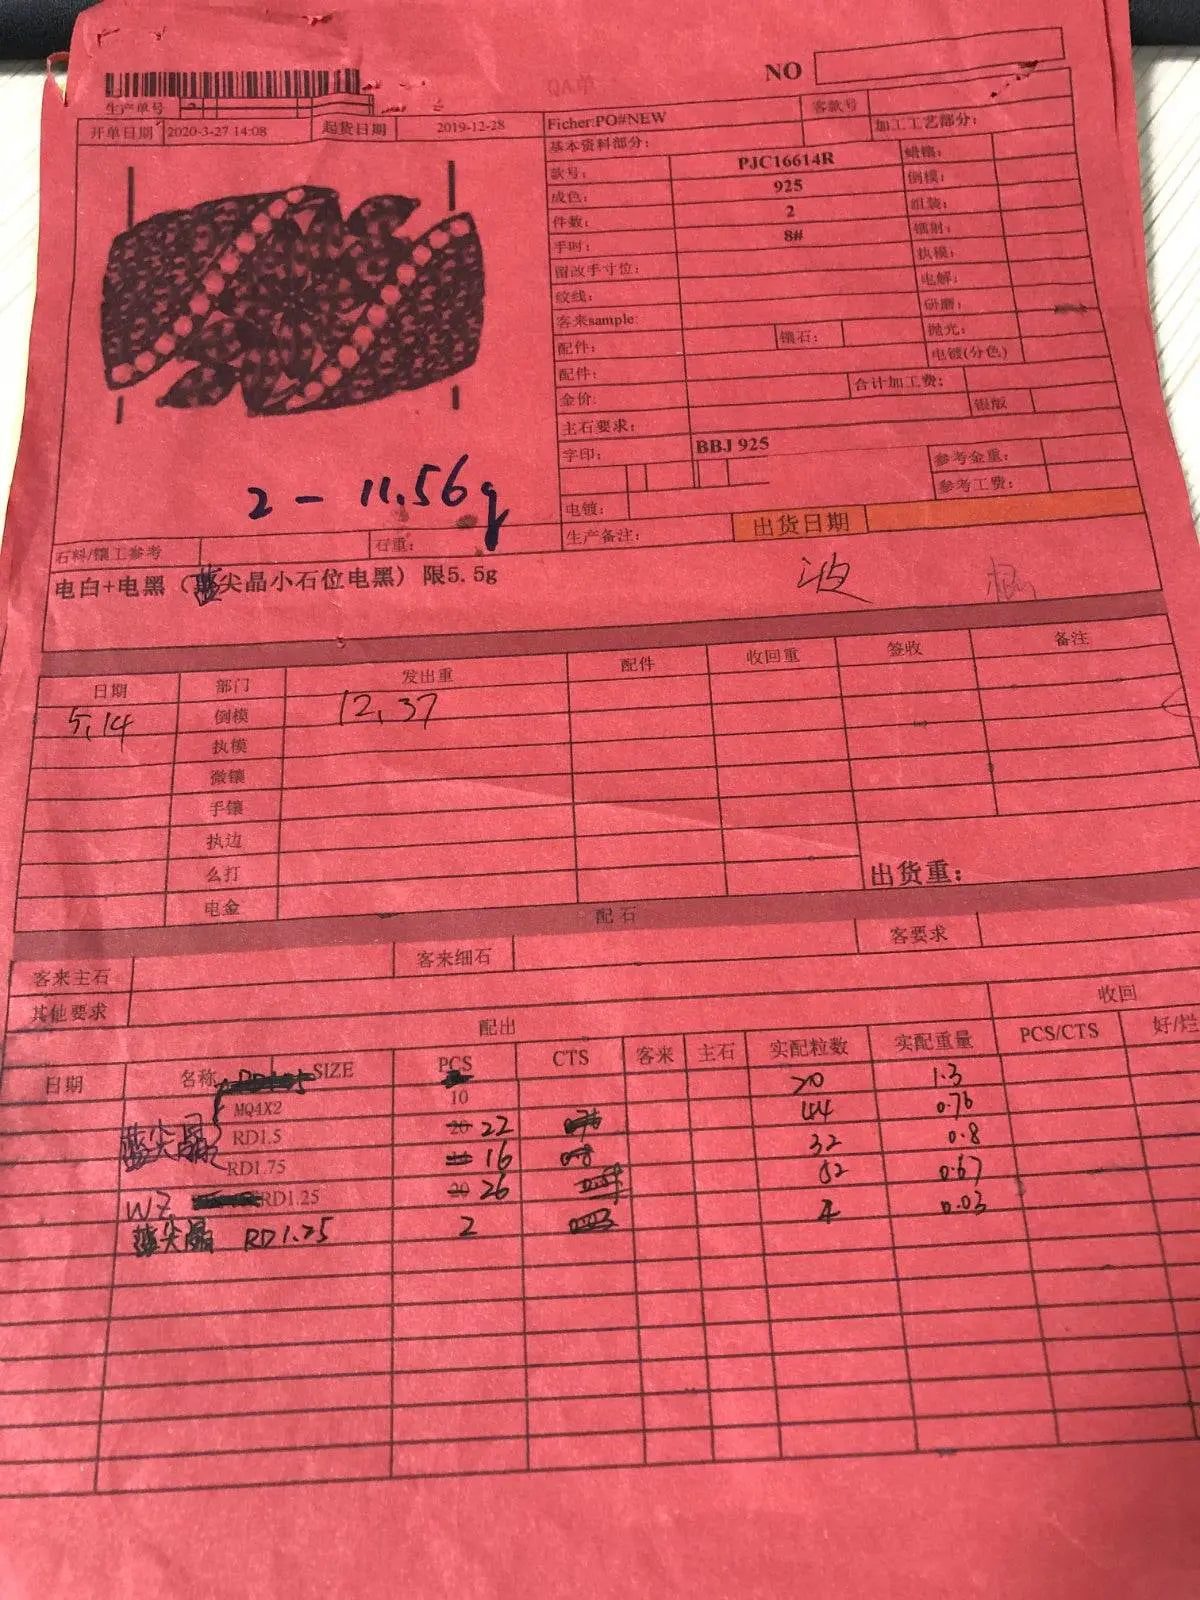 NO
生产单号
开单日期 2020-3-27 14:08 起货日期 2019-12-28
Ficher:PO#NEW 客款号
基本资料部分: 加工工艺部分:
款号: PJC16614R 蜡镶:
成色: 925 倒模:
件数: 2 组装:
手吋: 8# 镭射:
留改手寸位: 执模:
纹线: 电解:
客来sample: 研磨:
配件: 镶石: 抛光:
配件: 电镀(分色)
金价: 合计加工费:
主石要求: 银版
字印: BBJ 925 参考金重:
参考工费:
电镀:
生产备注: 出货日期
2 - 11.56g
石料/镶工参考 石重:
电白+电黑（蓝尖晶小石位电黑）限5.5g
日期 部门 发出重 配件 收回重 签收 备注
5.14 倒模 12.37
执模
微镶
手镶
执边
么打
电金
出货重:
配石
客来主石 客来细石 客要求
其他要求
配出 收回
日期 名称 SIZE PCS CTS 客来 主石 实配粒数 实配重量 PCS/CTS 好/烂
MQ4X2 10 20 1.3
蓝尖晶 RD1.5 20 22 0.76 44 0.76
RD1.75 16 0.8 32 0.8
WZ RD1.25 20 26 52 0.67
蓝尖晶 RD1.25 2 0.03 4 0.03